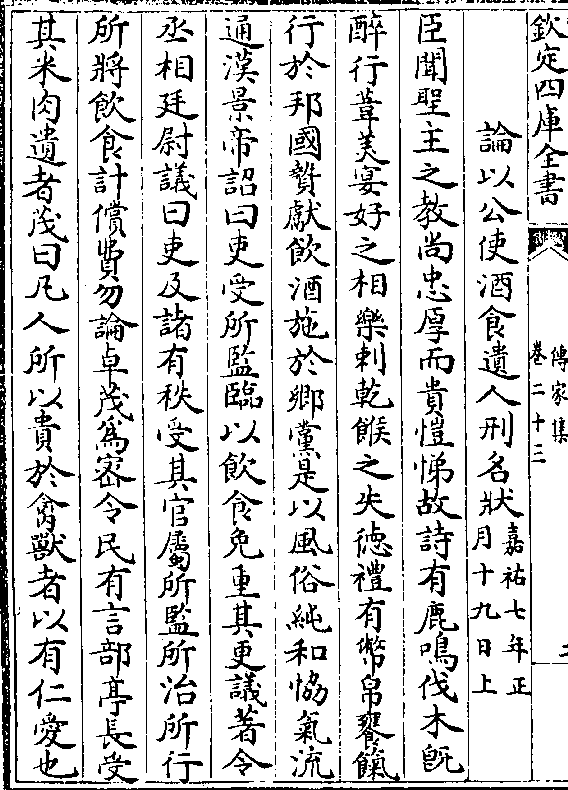 欽定四庫全書
傳家集
卷二十三
論以公使酒食遺人刑名狀嘉祐七年正
月十九日上
臣聞聖王之教尚忠厚而貴愷悌故詩有鹿鳴伐木既
醉行葦美宴好之相樂刺乾餱之失徳禮有幣帛饔餼
行於邦國贄獻飲酒施於鄉黨是以風俗純和恊氣流
通漢景帝詔曰吏受所監臨以飲食免重其更議著令
丞相廷尉議曰吏及諸有秩受其官屬所監所治所行
所將飲食計償費勿論卓茂為宻令民有言部亭長受
其米肉遺者茂曰凡人所以貴於禽獸者以有仁愛也